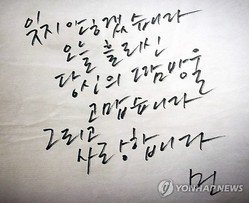 잊지 않겠습니다
오늘 흘리신
당신의 땀방울
고맙습니다
그리고
사랑합니다
YONHAP NEWS